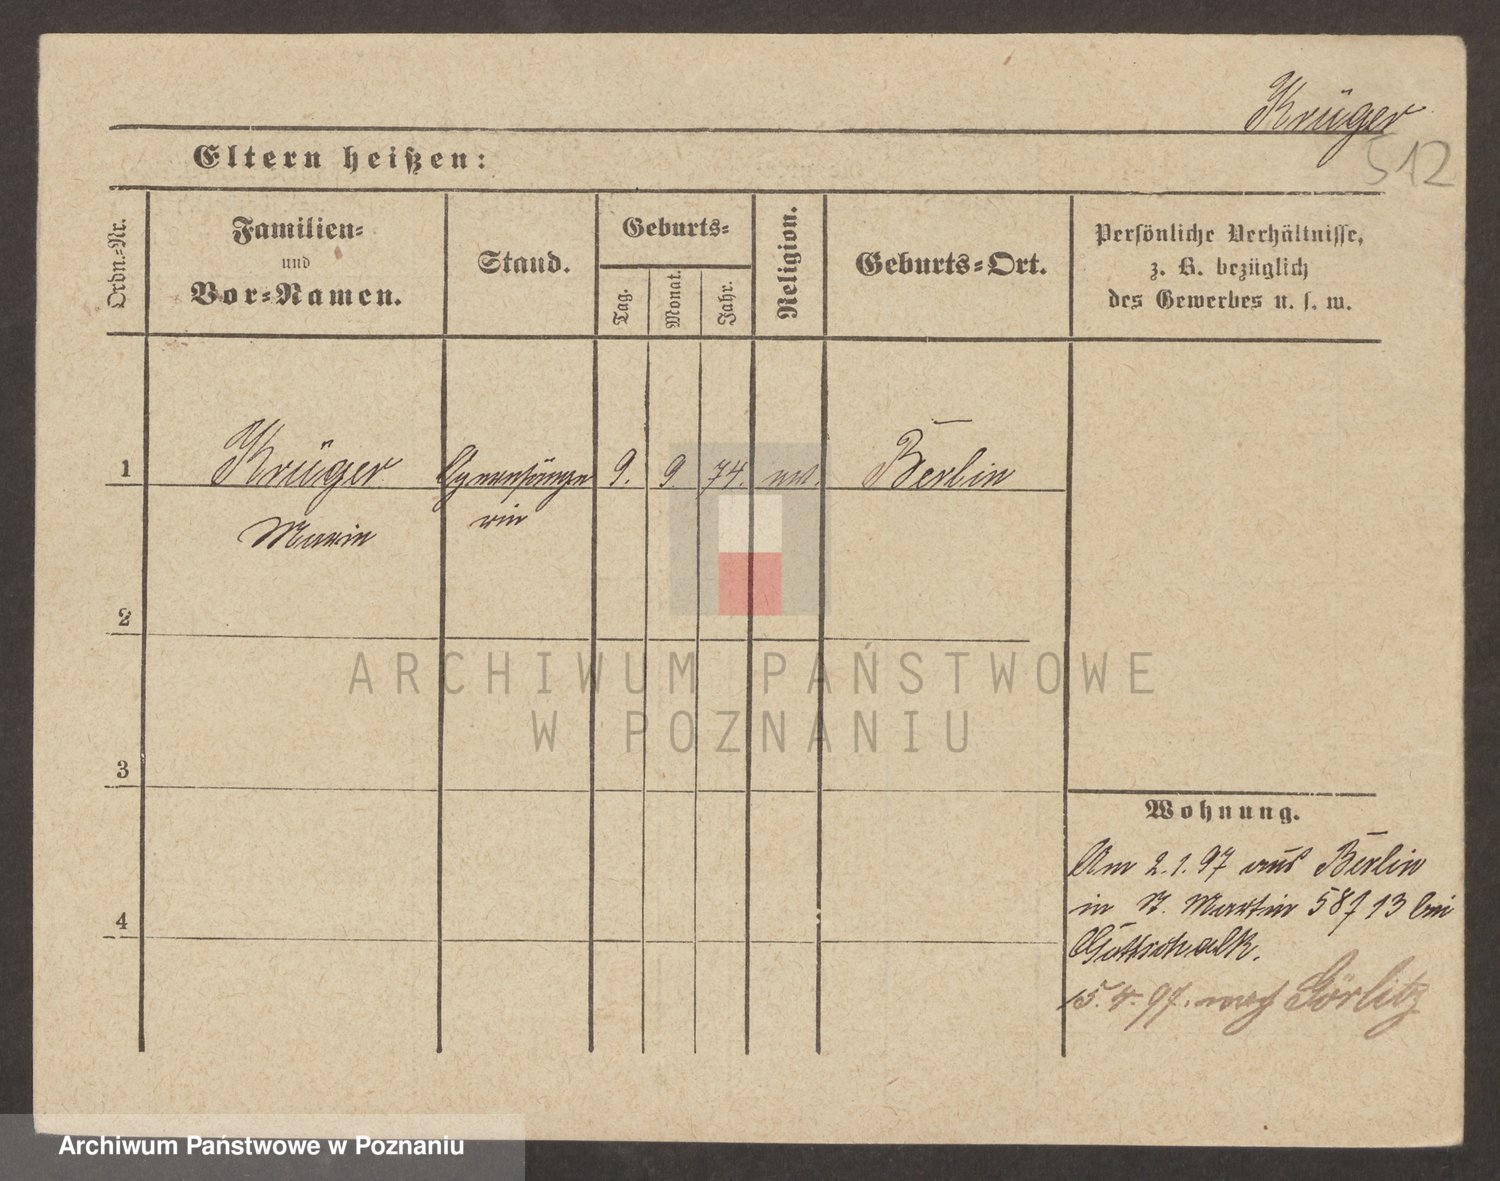 Krüger
512
Eltern heißen:
Ordn.-Nr.
Familien-
und
Vor-Namen.
Stand.
Geburts-
Tag.
Monat.
Jahr.
Religion.
Geburts-Ort.
Persönliche Verhältnisse,
z. B. bezüglich
des Gewerbes u. s. w.
1 Krüger Opernsänge 9. 9. 74. ev. Berlin
Marie rin
2
ARCHIWUM PAŃSTWOWE
W POZNANIU
3
4
Wohnung.
Am 2.1.97 aus Berlin
in St. Martin 58/13 bei
Gottschalk.
15.4.97. nach Görlitz
Archiwum Państwowe w Poznaniu